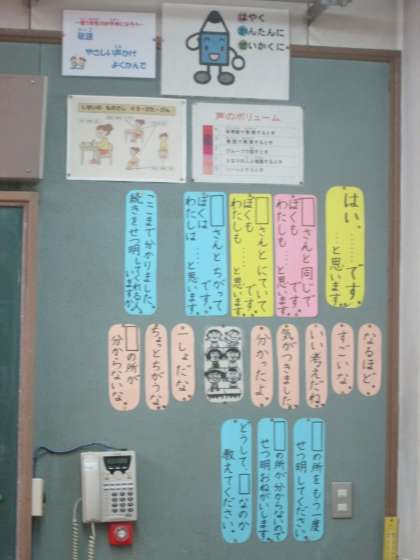 やさしい声かけ
よくかんで
はやく
かんたんに
せいかくに
声のボリューム
はい。……です。
…と思います。
□さんと同じで
ぼくも
わたしも……です。
…と思います。
□さんとにていて
ぼくも
わたしも……です。
…と思います。
□さんとちがって
ぼくは
わたしは……です。
…と思います。
ここまで分かりました。
続きをせつ明してくれる人
いますか。
なるほど。
すごいな。
いい考えだね。
気がつきました。
分かったよ。
いっしょだな。
ちょっとちがうな。
□の所が
分からないな。
□の所をもう一度
せつ明してください。
□の所が分からないので
せつ明おねがいします。
どうして、□なのか
教えてください。